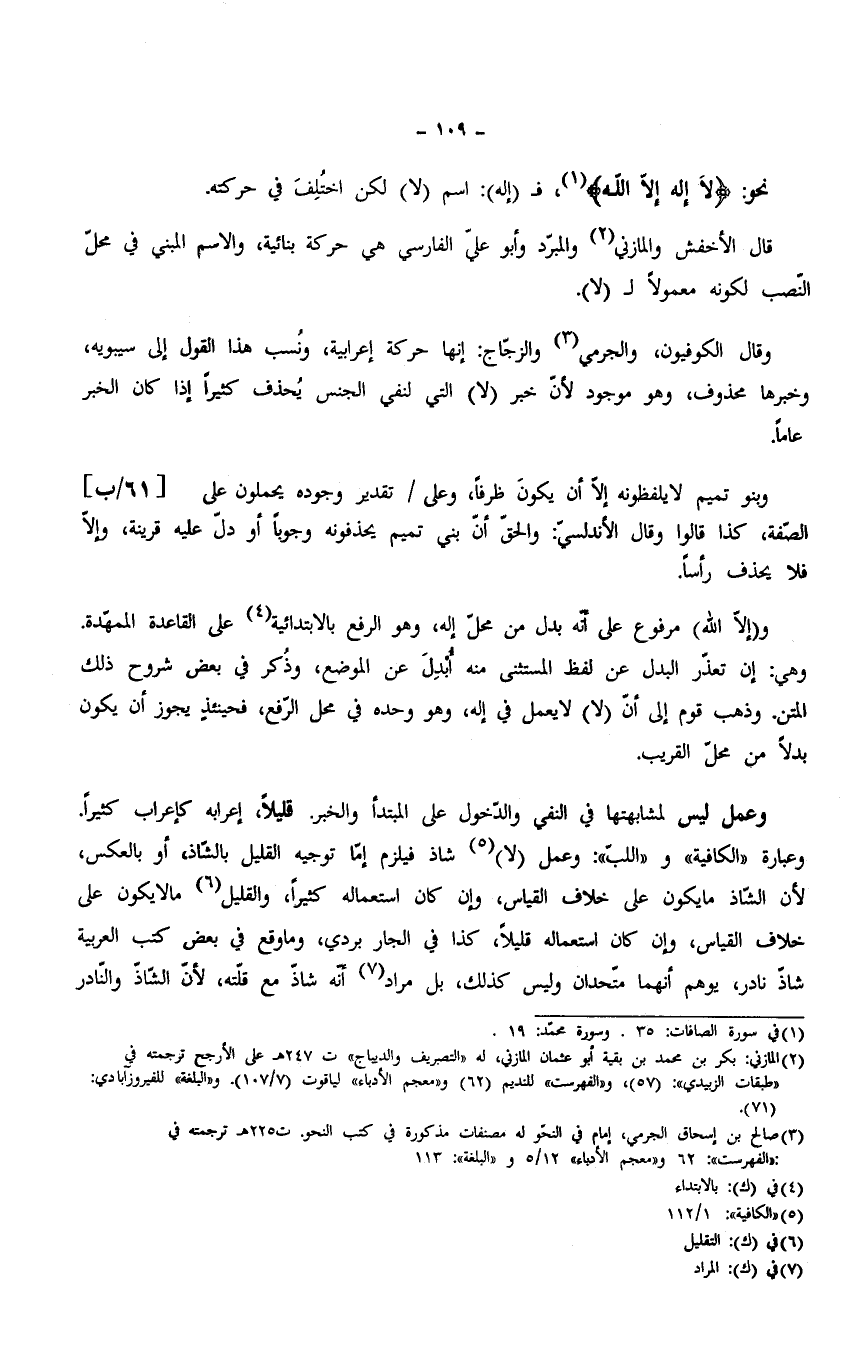 - ١٠٩ -
نحو: ﴿لاَ إله إلاّ اللّه﴾(١)، فـ (إله): اسم (لا) لكن اختُلِفَ في حركته.
قال الأخفش والمازني(٢) والمبرّد وأبو عليّ الفارسي هي حركة بنائية، والاسم المبني في محلّ
النّصب لكونه معمولاً لـ (لا).
وقال الكوفيون، والجرمي(٣) والزجّاج: إنها حركة إعرابية، ونُسب هذا القول إلى سيبويه،
وخبرها محذوف، وهو موجود لأنّ خبر (لا) التي لنفي الجنس يُحذف كثيراً إذا كان الخبر
عاماً.
وبنو تميم لايلفظونه إلاّ أن يكونَ ظرفاً، وعلى / تقدير وجوده يحملون على [٦١/ب]
الصّفة، كذا قالوا وقال الأندلسيّ: والحقّ أنّ بني تميم يحذفونه وجوباً أو دلّ عليه قرينة، وإلاّ
فلا يحذف رأساً.
و(إلاّ الله) مرفوع على أنّه بدل من محلّ إله، وهو الرفع بالابتدائية(٤) على القاعدة الممهّدة.
وهي: إن تعذّر البدل عن لفظ المستثنى منه أُبْدِلَ عن الموضع، وذُكر في بعض شروح ذلك
المتن. وذهب قوم إلى أنّ (لا) لايعمل في إله، وهو وحده في محل الرّفع، فحينئذٍ يجوز أن يكون
بدلاً من محلّ القريب.
وعمل ليس لمشابهتها في النفي والدّخول على المبتدأ والخبر. قليلاً، إعرابه كإعراب كثيراً.
وعبارة «الكافية» و «اللبّ»: وعمل (لا)(٥) شاذ فيلزم إمّا توجيه القليل بالشّاذ، أو بالعكس،
لأن الشّاذ مايكون على خلاف القياس، وإن كان استعماله كثيراً، والقليل(٦) مالايكون على
خلاف القياس، وإن كان استعماله قليلاً، كذا في الجار بردي، وماوقع في بعض كتب العربية
شاذّ نادر، يوهم أنهما متّحدان وليس كذلك، بل مراد(٧) أنّه شاذّ مع قلّته، لأنّ الشّاذّ والنّادر
(١)في سورة الصافات: ٣٥ . وسورة محمّد: ١٩ .
(٢)المازني: بكر بن محمد بن بقية أبو عثمان المازني، له «التصريف والديباج» ت ٢٤٧هـ على الأرجح ترجمته في
«طبقات الزبيدي»: (٥٧)، و«الفهرست» للنديم (٦٢) و«معجم الأدباء» لياقوت (١٠٧/٧). و«البلغة» للفيروزآبادي:
(٧١).
(٣)صالح بن إسحاق الجرمي، إمام في النحّو له مصنفات مذكورة في كتب النحو. ت٢٢٥هـ ترجمته في
:«الفهرست»: ٦٢ و«معجم الأدباء» ٥/١٢ و «البلغة»: ١١٣
(٤)في (ك): بالابتداء
(٥)«الكافية»: ١١٢/١
(٦)في (ك): التقليل
(٧)في (ك): المراد